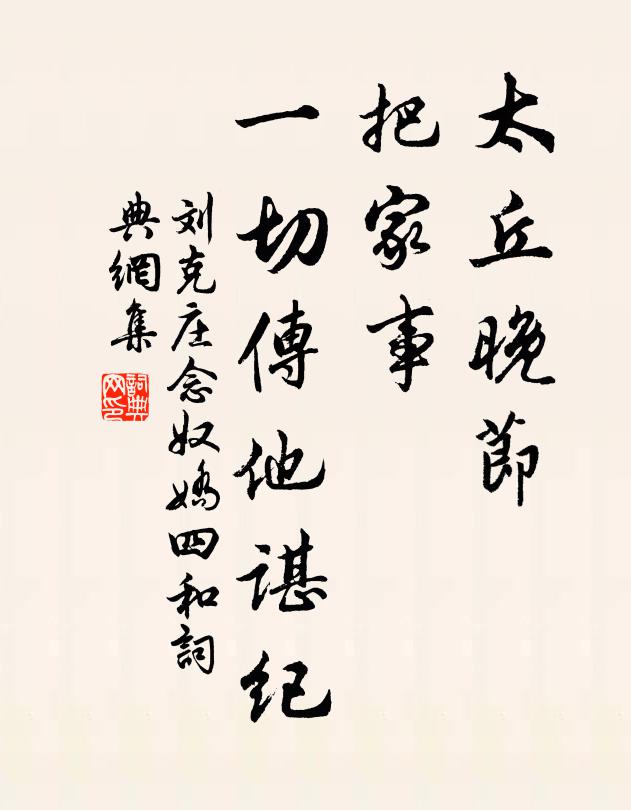 太丘晚節
把家事
一切傳他諶紀
刘克庄念奴嬌四和詞
典網集
詞典网印